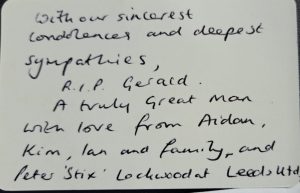 With our sincerest
condolences and deepest
sympathies,
R.I.P. Gerald.
A truly Great Man
with love from Aidan,
Kim, Ian and family, and
Peter 'Stix' Lockwood at Leeds Utd